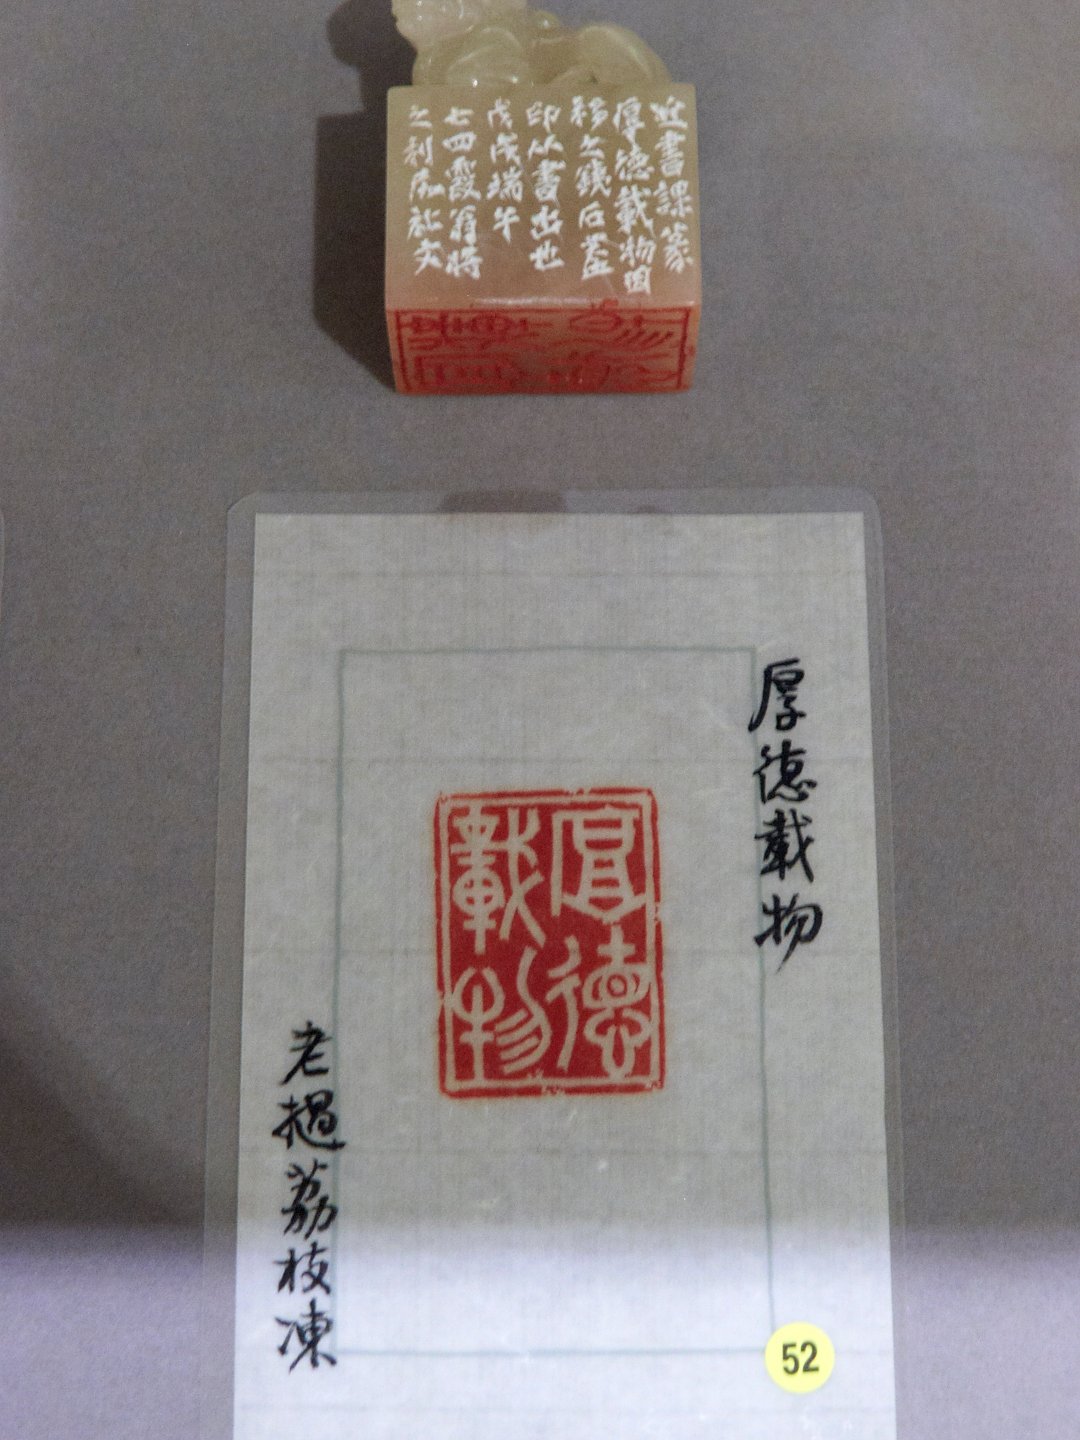 近書課篆
厚德載物因
移之錢石蓋
印从書出也
戊戌瑞午
七四霞翁將
之利於社交
厚德載物
厚德載物
老撾荔枝凍
52